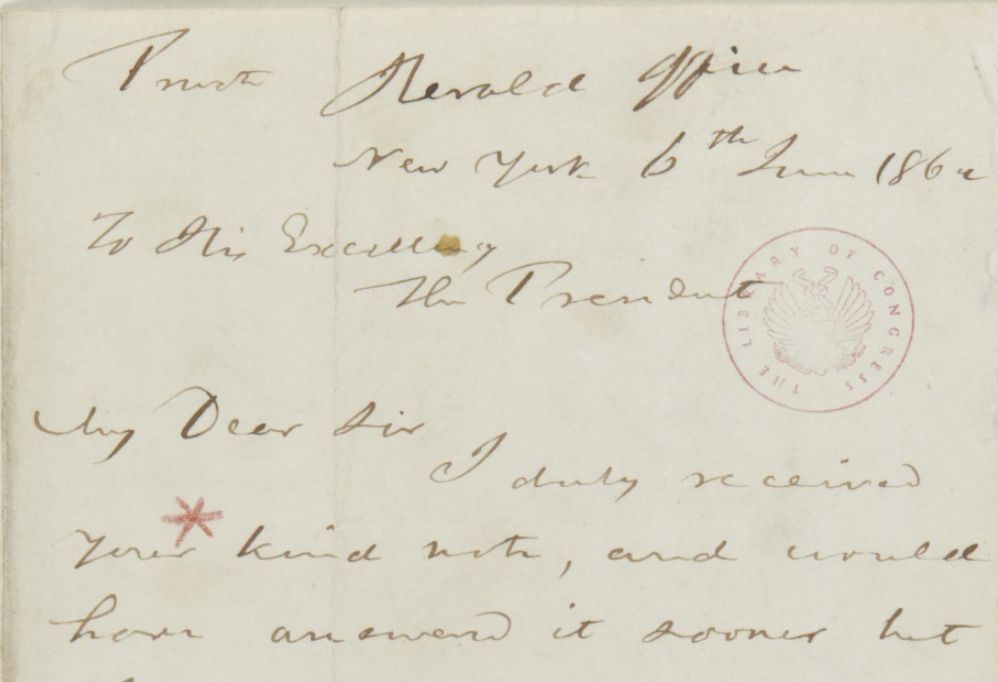 Private Herald Office
New York 6th June 1862
To His Excellency
The President
THE LIBRARY OF CONGRESS
My Dear Sir
I duly received
your kind note, and would
have answered it sooner but